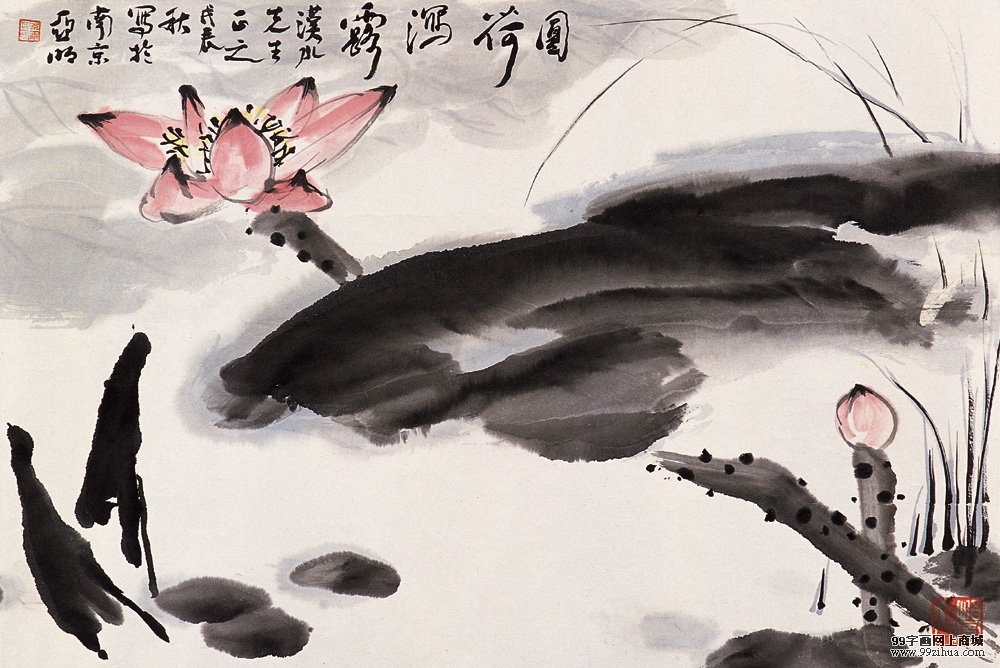 圆
荷
泻
露
漠水
先生
正之
戊辰
秋
写於
南京
亚明
99字画网上商城
www.99zihua.com